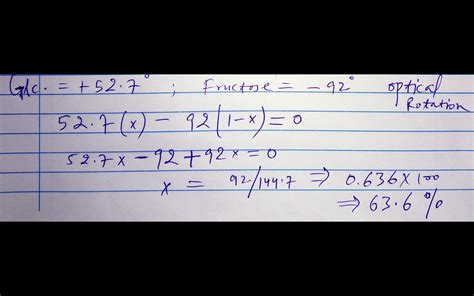 Glc. = +52.7° ; Fructose = -92° optical Rotation
52.7(x) - 92(1-x) = 0
52.7x - 92 + 92x = 0
x = 92/144.7 ⇒ 0.636 x 100
⇒ 63.6 %